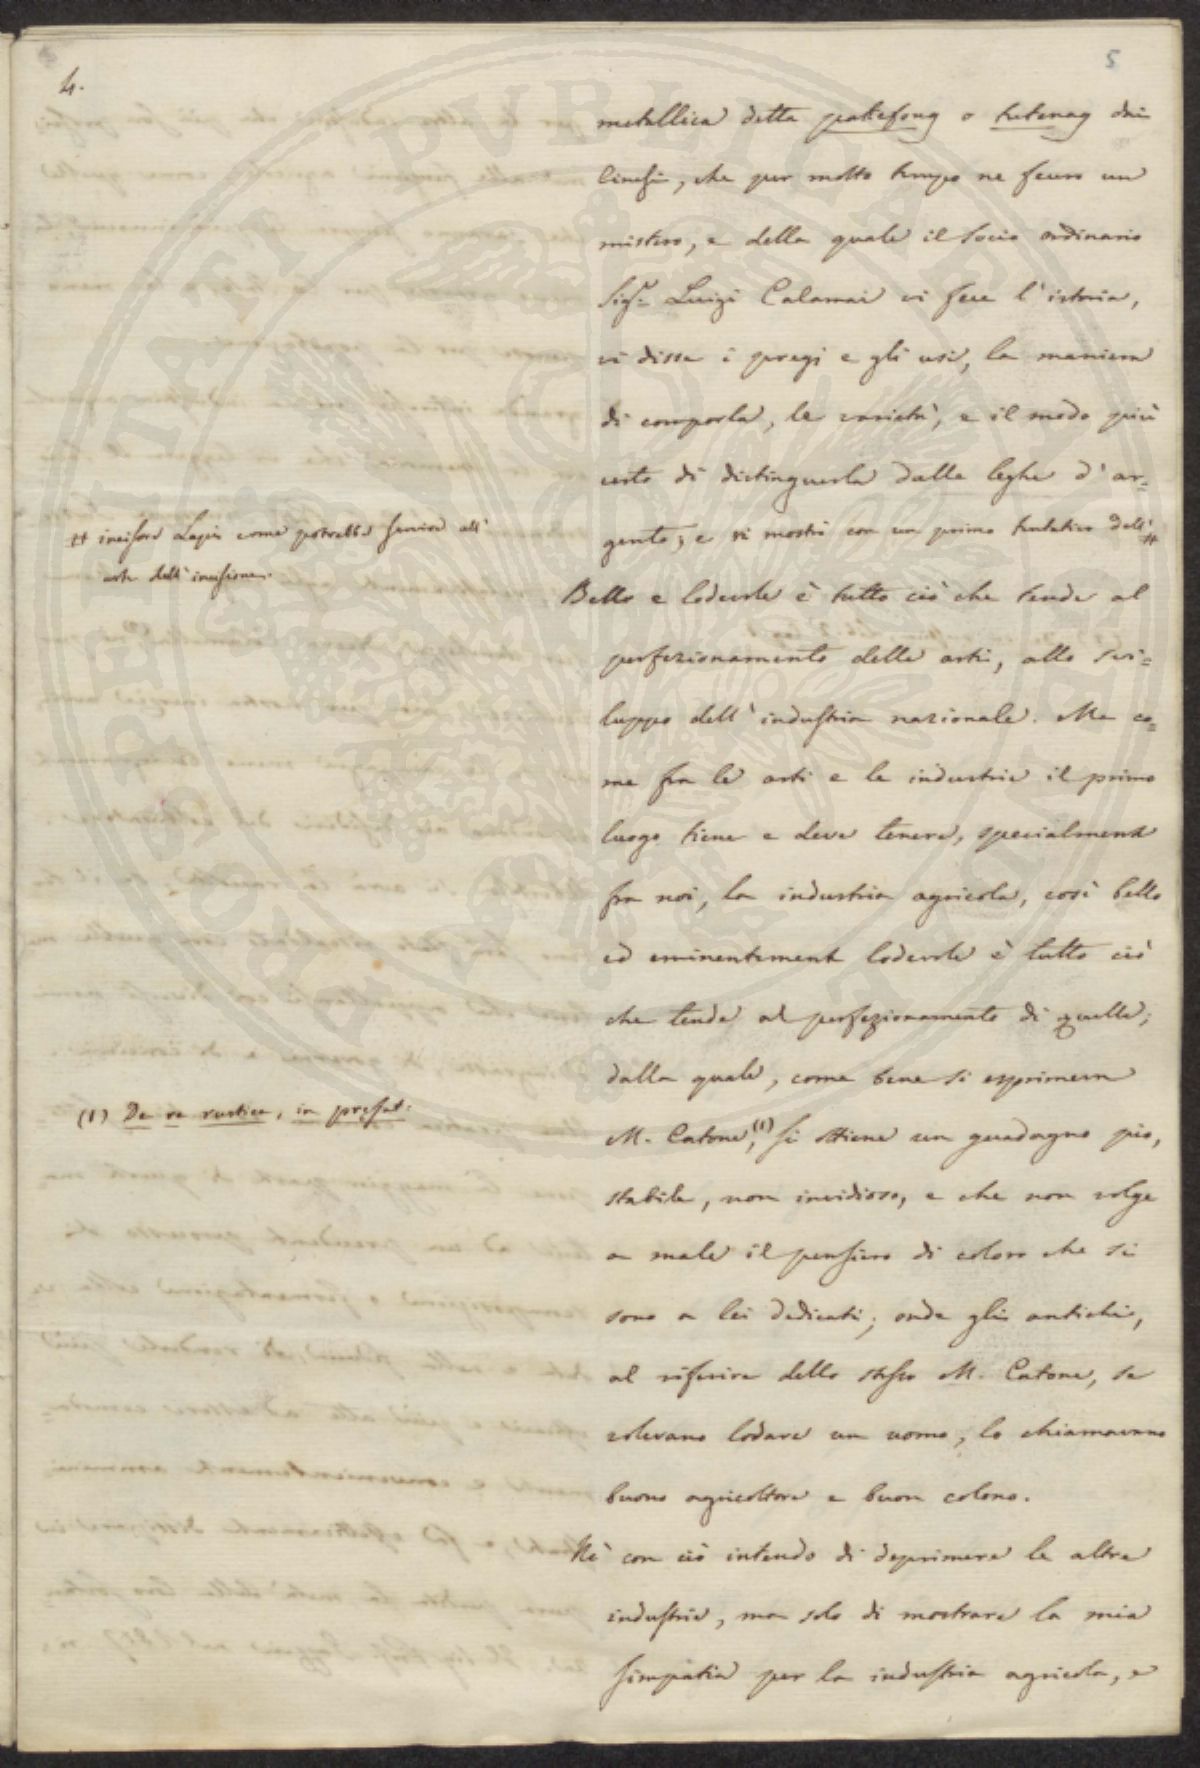 4.
5
metallica detta pakefong o tutenag dai
Cinesi, che per molto tempo ne fecero un
mistero, e della quale il socio ordinario
Sigr. Luigi Calamai vi fece l'istoria,
vi disse i pregi e gli usi, la maniera
di comporla, le varietà, e il modo più
certo di distinguerla dalle leghe d'ar=
gento; e vi mostrò con un primo tentativo dell' #
# incisore Lapi come potrebbe servire all'
arte dell'incisione.
Bello e lodevole è tutto ciò che tende al
perfezionamento delle arti, allo svi=
luppo dell'industria nazionale. Ma co=
me fra le arti e le industrie il primo
luogo tiene e deve tenere, specialmente
fra noi, la industria agricola, così bello
ed eminentemente lodevole è tutto ciò
che tende al perfezionamento di quella;
dalla quale, come bene si esprimeva
M. Catone,(1) si ottiene un guadagno pio,
stabile, non invidioso, e che non volge
a male il pensiero di coloro che si
sono a lei dedicati; onde gli antichi,
al riferire dello stesso M. Catone, se
volevano lodare un uomo, lo chiamavano
buono agricoltore e buon colono.
(1) De re rustica, in prefat:
Nè con ciò intendo di deprimere le altre
industrie, ma solo di mostrare la mia
simpatia per la industria agricola, e
PERITATI PVBLICAE